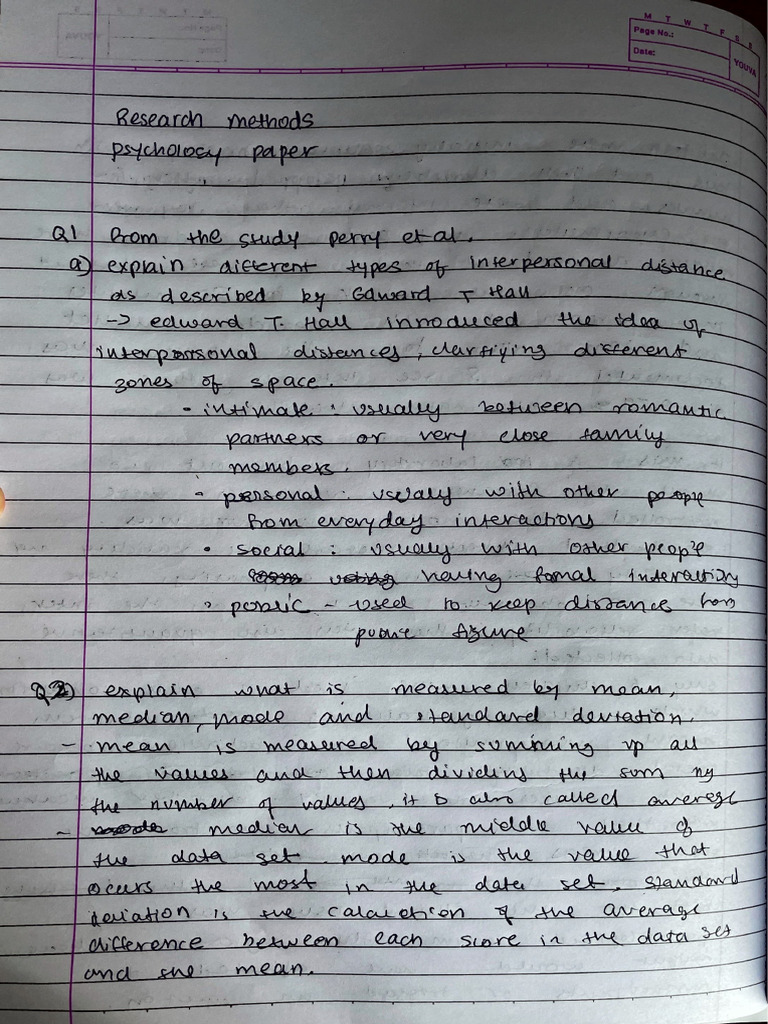 M T W T F S S
Page No.:
Date:
YOUVA
Research methods
psychology paper
Q1 From the study perry et al.
a) explain different types of interpersonal distance
as described by Edward T Hall
-> edward T. Hall inroduced the idea of
interpersonal distances, clarfiying different
zones of space.
• intimate : usually between romantic
partners or very close family
members.
• personal : usualy with other people
from everyday interactions
• social : usually with other people
having fomal interaction
• public - used to keep distance from
public figure
Q2) explain what is measured by mean,
median, mode and standard deviation.
- mean is measured by summing up all
the values and then dividing the sum ny
the number of values, it is also called average
- median is the middle value of
the data set. mode is the value that
occurs the most in the data set. standard
deviation is the calculation of the average
difference between each score in the data set
and the mean.